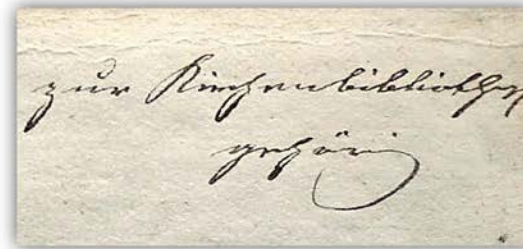 zur Kirchenbibliothek
gehörig